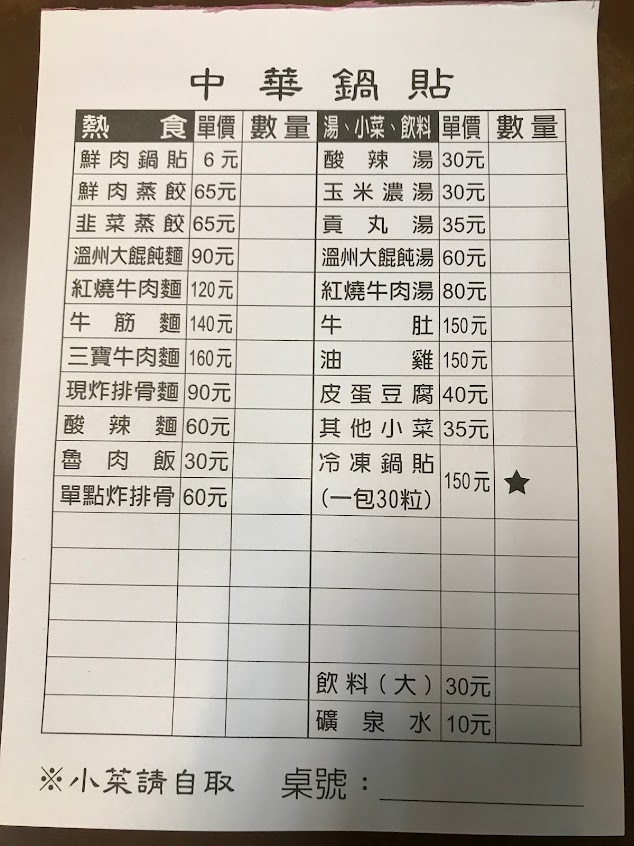 中華鍋貼
熱食 單價 數量 湯、小菜、飲料 單價 數量
鮮肉鍋貼 6元 酸辣湯 30元
鮮肉蒸餃 65元 玉米濃湯 30元
韭菜蒸餃 65元 貢丸湯 35元
溫州大餛飩麵 90元 溫州大餛飩湯 60元
紅燒牛肉麵 120元 紅燒牛肉湯 80元
牛筋麵 140元 牛肚 150元
三寶牛肉麵 160元 油雞 150元
現炸排骨麵 90元 皮蛋豆腐 40元
酸辣麵 60元 其他小菜 35元
魯肉飯 30元 冷凍鍋貼 150元 ★
單點炸排骨 60元 (一包30粒)
飲料(大) 30元
礦泉水 10元
※小菜請自取 桌號：